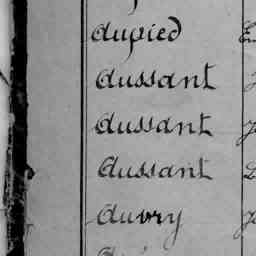 Aupied
Aussant
Aussant
Aussant
Auvry